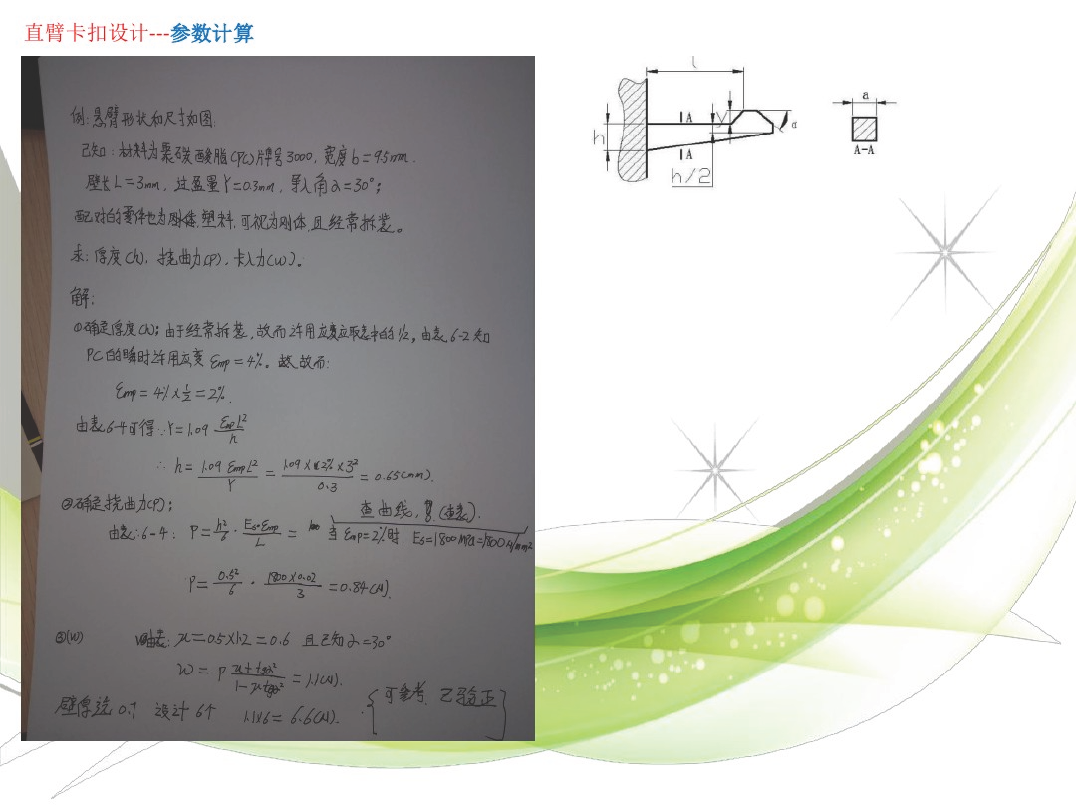 直臂卡扣设计---参数计算
例:悬臂形状和尺寸如图.
已知:材料为聚碳酸脂(PC)牌号3000,宽度b=9.5mm.
壁长L=3mm,过盈量Y=0.3mm,导入角α=30°;
配对的零件也为刚体,塑料,可视为刚体,且经常拆装。
求:厚度(h),挠曲力(P),卡入力(W)。
解:
①确定厚度(h);由于经常拆装,故而许用应变应取表中的1/2,由表6-2知
PC的瞬时许用应变 Emp=4%。故而:
Emp=4%×1/2=2%.
由表6-4可得∵Y=1.09 EmpL²/h
∴h= 1.09 EmpL²/Y = 1.09××2%×3²/0.3 =0.65(mm).
②确定挠曲力(P);
查曲线,(查表).
由表:6-4: P= h²/6 · Es·Emp/L = 当Emp=2%时 Es=1800MPa=1800N/mm²
P= 0.5²/6 · 1800×0.02/3 =0.84(N).
③(W) 由表: μ=0.5×1.2=0.6 且已知α=30°
W= P μ+tgα/1-μtgα =1.1(N).
壁厚选0. 设计6个 1.1×6=6.6(N). {可参考, 已验证}
l
a
A
y
α
h
A
A-A
h/2